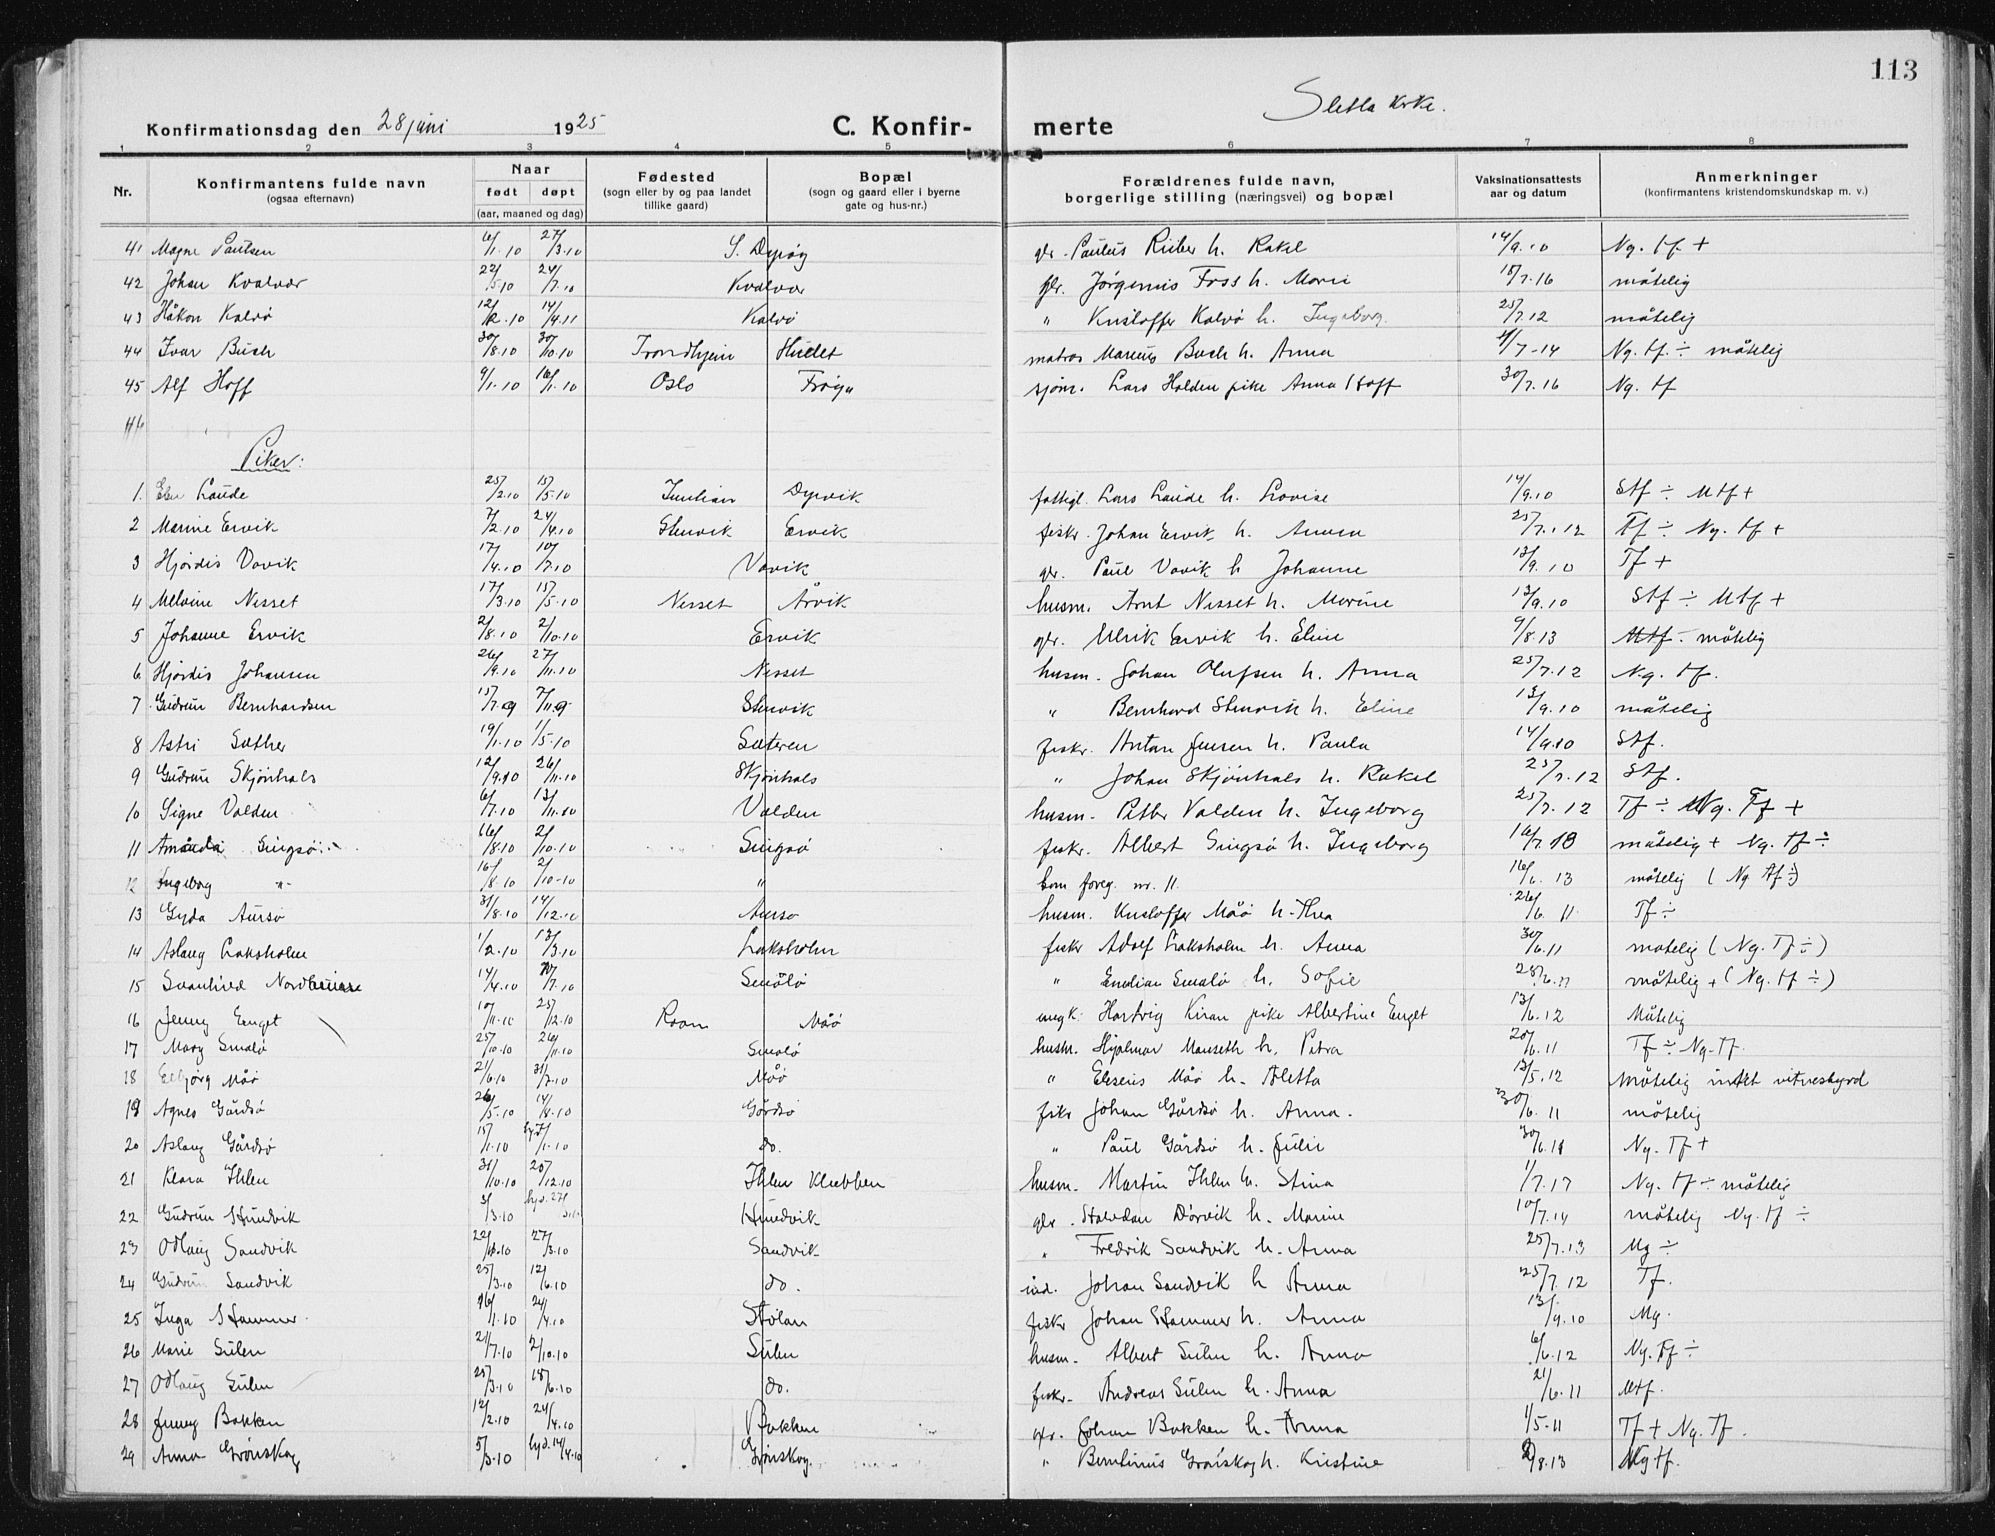 113
Sletta kirke.
Konfirmationsdag den 28 juni 1925 C. Konfir- merte
1 2 3 4 5 6 7 8
Nr. Konfirmantens fulde navn (ogsaa efternavn) Naar født døpt (aar, maaned og dag) Fødested (sogn eller by og paa landet tillike gaard) Bopæl (sogn og gaard eller i byerne gate og hus-nr.) Forældrenes fulde navn, borgerlige stilling (næringsvei) og bopæl Vaksinationsattests aar og datum Anmerkninger (konfirmantens kristendomskundskap m. v.)
41 Magne Paulsen 6/1.10 27/3.10 S. Dyrøy gbr. Paulus h. Rakel 14/9.10 Ng. tf +
42 Johan Kvalvær 22/5.10 24/7.10 Kvalvær gbr. Jørginus Foss h. Marie 18/7.16 måtelig
43 Håkon Kalvø 12/12.10 14/4.11 Kalvø " Kristoffer Kalvø h. Ingeborg. 25/7.12 måtelig
44 Ivar Buch 30/8.10 30/10.10 Trondhjem matros Marius Buch h. Anna /7-14 Ng. tf. ÷ måtelig
45 Alf Hoff 9/1.10 16/1.10 Oslo Frøya sjøm. Lars Holden pike Anna Hoff 30/7.16 Ng. tf
46
Piker:
1. Laude 25/2.10 15/5.10 Dyrvik fattigl. Lars Laude h. Lovise 14/9.10 Stf ÷ Mtf +
2 Marine Ervik 7/2.10 24/4.10 Stenvik Ervik fisker. Johan Ervik h. Anna 25/7.12 Tf ÷ Ng. tf +
3 Hjørdis Vavik 17/4.10 10/7.10 Vavik gbr. Paul Vavik h Johanne 13/9.10 Tf +
4 Melvine Nesset 17/3.10 15/5.10 Nesset Årvik husm. Arnt Nesset h. Marine 13/9.10 Stf ÷ Mtf +
5 Johanne Ervik 2/8.10 2/10.10 Ervik gbr. Ulrik Ervik h. Eline 9/8.13 Mtf ÷ måtelig
6 Hjørdis Johansen 26/9.10 27/11.10 Nesset husm. Johan Olufsen h. Anna 25/7.12 Ng. tf.
7 Gudrun Bernhardsen 15/7.9 7/11.9 Stenvik " Bernhard Stenvik h. Eline 13/9.10 måtelig
8 Astri Sæther 19/1.10 1/5.10 Sæteren fiskr. Anton Jensen h. Paula 14/9.10 Stf.
9 Gudrun Skjønhals 12/9.10 26/11.10 Skjønhals " Johan Skjønhals h. Rakel 25/7.12 Stf.
10 Signe Valden 6/7.10 13/11.10 Valden husm. Petter Valden h. Ingeborg 25/7.12 Tf ÷ Ng. Tf +
11 Amanda Singsø 16/8.10 2/10.10 Singsø fiskr. Albert Singsø h. Ingeborg 16/7.18 måtelig + Ng. tf ÷
12 Ingeborg " 16/8.10 2/10-10 " som foreg. nr. 11. 16/6.13 måtelig (Ng tf ÷)
13 Gyda Aursø 31/8.10 14/12.10 Aursø husm. Kristoffer Måø h. Thea 26/6.11 Tf ÷
14 Aslaug Laksholm 1/2.10 13/3.10 Laksholm fiskr Adolf Laksholm h. Anna 30/6.11 måtelig (Ng. Tf ÷)
15 Svanhild 14/4.10 10/7.10 Smålø " Emilian Smalø h. Sofie 28/6.11 måtelig + (Ng. tf ÷)
16 Jenny Enget 10/11.10 25/12.10 Roan Måø ungk. Hartvig Kiran pike Albertine Enget 13/6.12 Måtelig
17 Mary Smalø 25/10.10 26/11.10 Smalø husm. Hjalmar Manseth h. Petra 20/6.11 Tf ÷ Ng. Tf.
18 Eilbjørg Måø 21/6.10 31/7.10 Måø " Eliseus Måø h. Aletta 13/5.12 Måtelig intet vitnesbyrd
19 Agnes Gårdsø 26/5.10 14/8.10 Gårdsø fiskr Johan Gårdsø h. Anna. 30/6.11 måtelig
20 Aslaug Gårdsø 15/1.10 /1.10 do. " Paul Gårdsø h. Julie 30/6.11 Ng. Tf +
21 Klara Ihlen 31/10.10 25/12.10 Ihlen Klubben husm. Martin Ihlen h. Stina 1/7.17 Ng. tf ÷ måtelig
22 Gudrun Hundvik 3/3.10 Hundvik gbr. Halvdan Dørvik h. Marine 10/7.14 måtelig Ng. tf ÷
23 Odlaug Sandvik /3.10 Sandvik " Fredrik Sandvik h. Anna 25/7.13 Mg ÷
24 Gudrun Sandvik 25/3.10 12/6.10 do. Johan Sandvik h Anna 25/7.12 Tf.
25 Inga Hammer 16/1.10 24/4.10 Stølan fiskr Johan Hammer h. Anna 13/9.10 Mg.
26 Marie Sulen 21/7.10 2/10.10 Sulen husm. Albert Sulen h. Anna 6/6.12 Ng. Tf ÷
27 Odlaug Sulen 25/3.10 18/6.10 do. fiskr. Andreas Sulen h. Anna 21/6.11 Mtf.
28 Jenny Bakken 12/2.10 24/4.10 Bakken gbr. Johan Bakken h. Anna 1/5.11 Tf + Ng. Tf.
29 Anna Grønskag 5/3.10 hjd. 14/4.10 Grønskag. " Berntinus Grønskag h. Kristine /8.13 Ng tf.